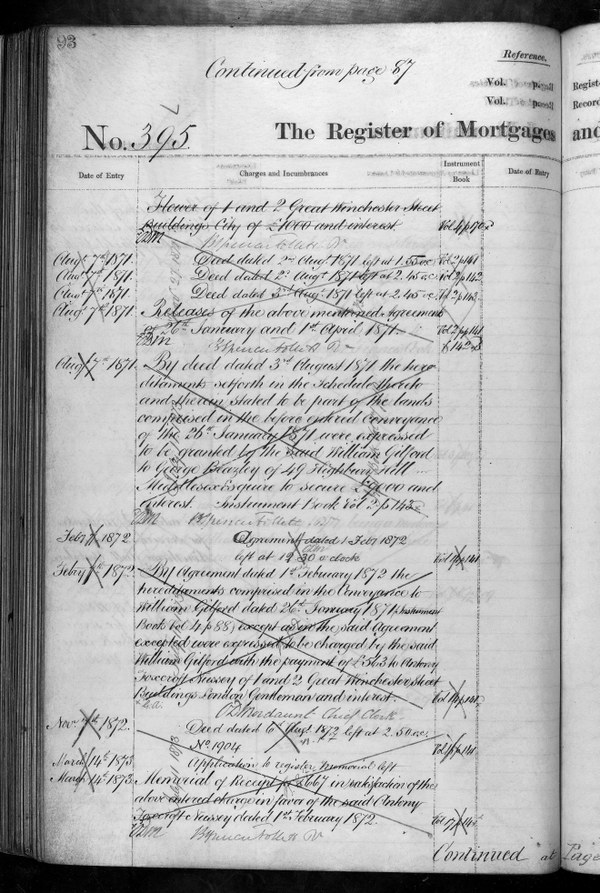 93
Reference.
Continued from page 87
Vol. p.
Vol. p.
No. 395.
The Register of Mortgages and
Date of Entry
Charges and Incumbrances
Instrument Book
Date of Entry
Registe
Record
Flower of 1 and 2 Great Winchester Street
Buildings City of £1000 and interest
Augt 7th 1871. Deed dated 2nd Augt 1871 left at
Augt 7th 1871. Deed dated 2nd Augt 1871 left at 2.45 Vol 2 p 142
Augt 7th 1871. Deed dated 3rd Augt 1871 left at 2.45
Augt 7th 1871. Releases of the above mentioned Agreement
26th January and 1st April 1871.
B Spencer Follett
Augt 7th 1871. By deed dated 3rd August 1871 the here
ditaments set forth in the Schedule thereto
and therein stated to be part of the lands
comprised in the before entered conveyance
of the 26th January 1871 were expressed
to be granted by the said William Gilford
to George Blazley of 49 Highbury Hill
Middlesex Esquire to secure and
interest. Instrument Book Vol 2 p 145
B Spencer Follett
Feby 1872 Agreement dated 1 Feby 1872
left at 12 30 o'clock
Feby 1872. By Agreement dated 1st February 1872 the
hereditaments comprised in the Conveyance to
William Gilford dated 26th January 1871 (Instrument
Book Vol 4 p 88) except as in the said Agreement
excepted were expressed to be charged by the said
William Gilford with the payment of £563 to Antony
Foxcroft Nussey of 1 and 2 Great Winchester Street
Buildings London Gentleman and interest.
Mordaunt Chief Clerk
Novr 1872. Deed dated 6th Augt 1872 left at 2.50
No. 1904
March 14th 1873 Application to register Memorial left
March 14th 1873. Memorial of Receipt for £667 in satisfaction of the
above entered charge in favor of the said Antony
Foxcroft Nussey dated 1st February 1872.
B Spencer Follett
Continued at Page